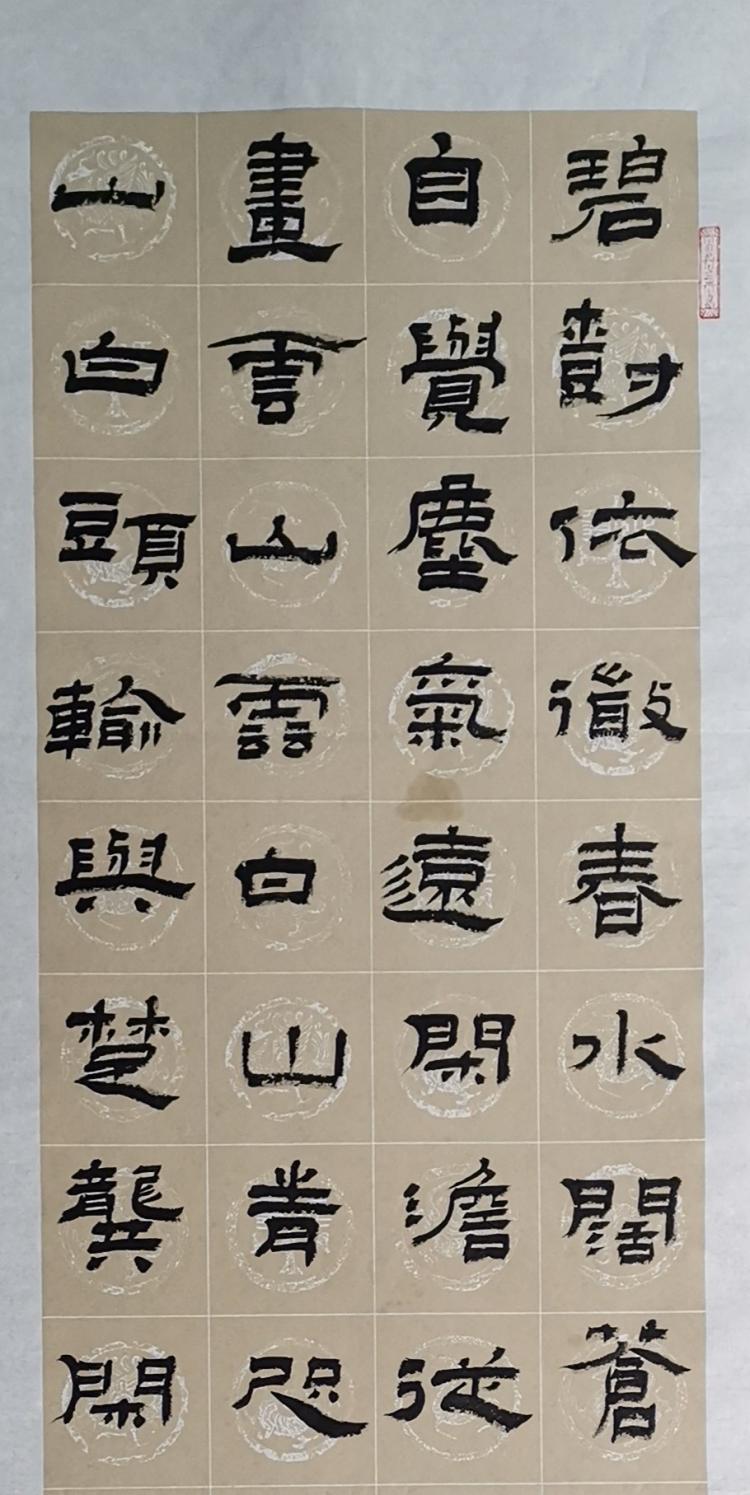 碧對依徹春水闊蒼
自覺塵氣遠閑澹從
畫雲山雲白山青咫
山白頭輸與楚龔閑